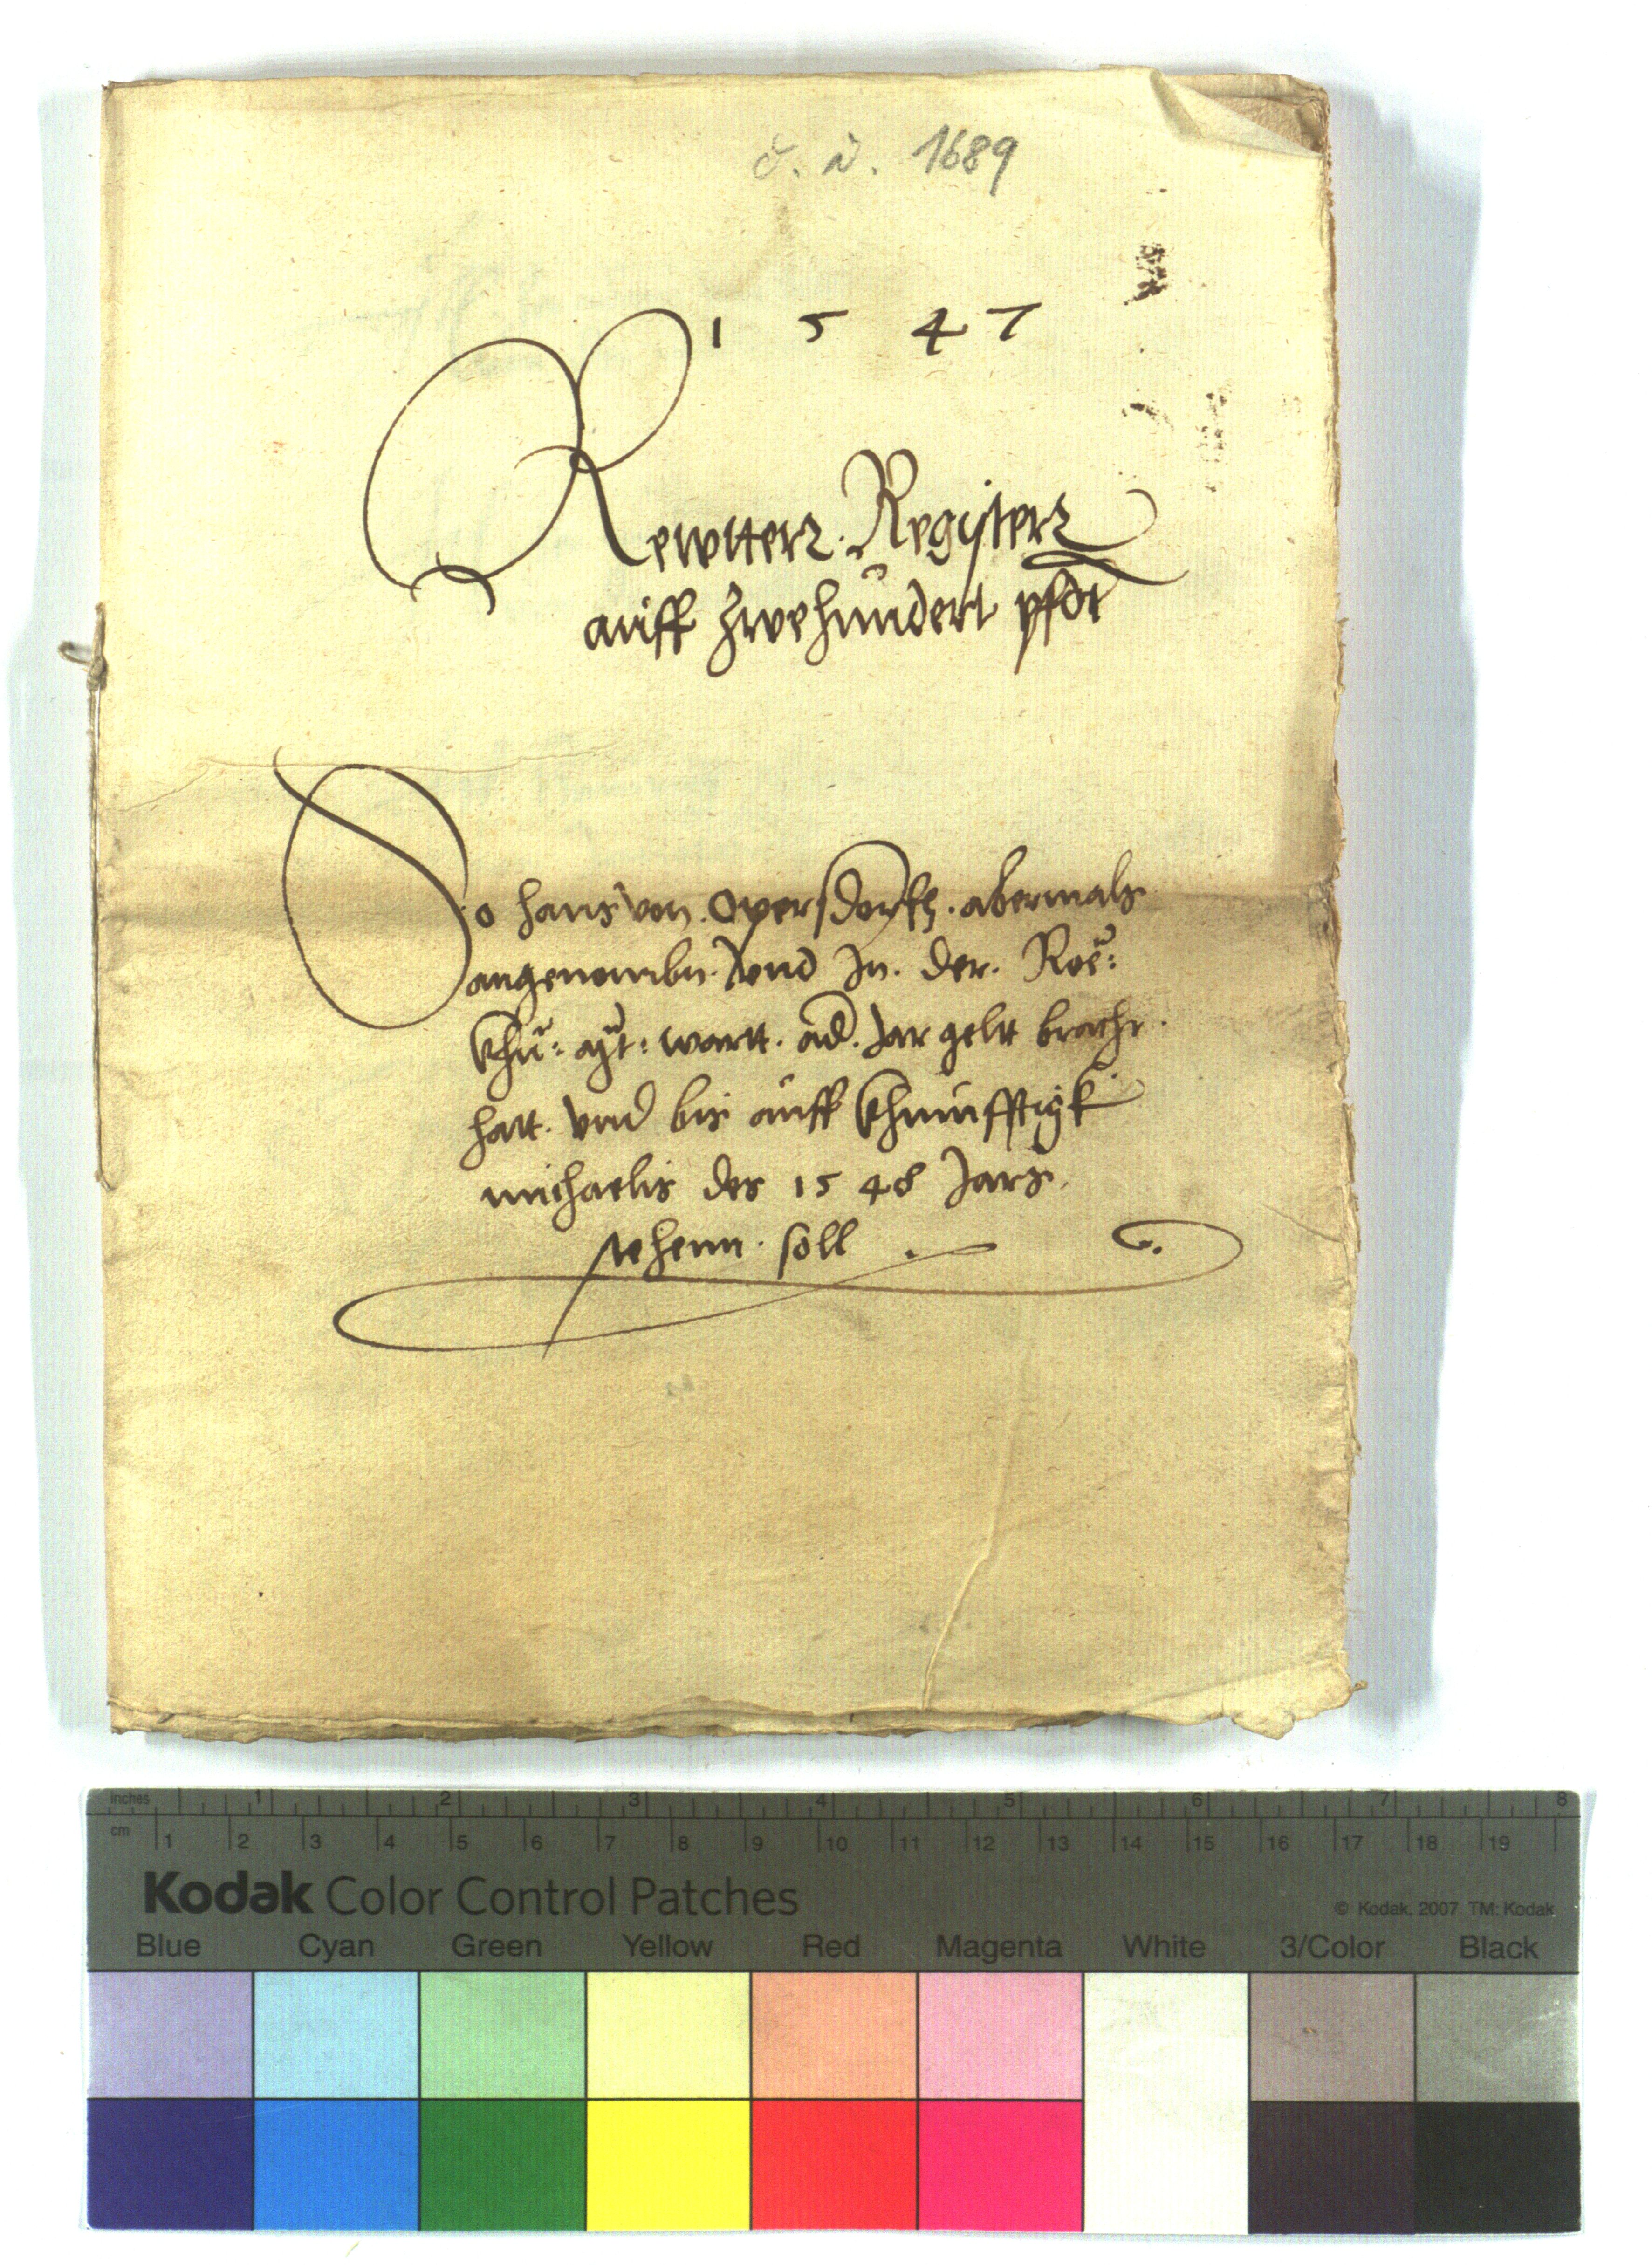 č. à. 1689
1 5 4 7
Rewtter. Register
auff Zwehundert pfdt
So hans von. Opersdorff. abermals
angenomben. Vnd In. der. Roe:
Khu: Mt: wartt. Jar gelt bracht.
hatt. Vnd bis auff Khunfftigk
michaelis des 1548 Jars.
stehenn. soll
inches 1 2 3 4 5 6 7 8
cm 1 2 3 4 5 6 7 8 9 10 11 12 13 14 15 16 17 18 19
Kodak Color Control Patches © Kodak, 2007 TM: Kodak
Blue Cyan Green Yellow Red Magenta White 3/Color Black